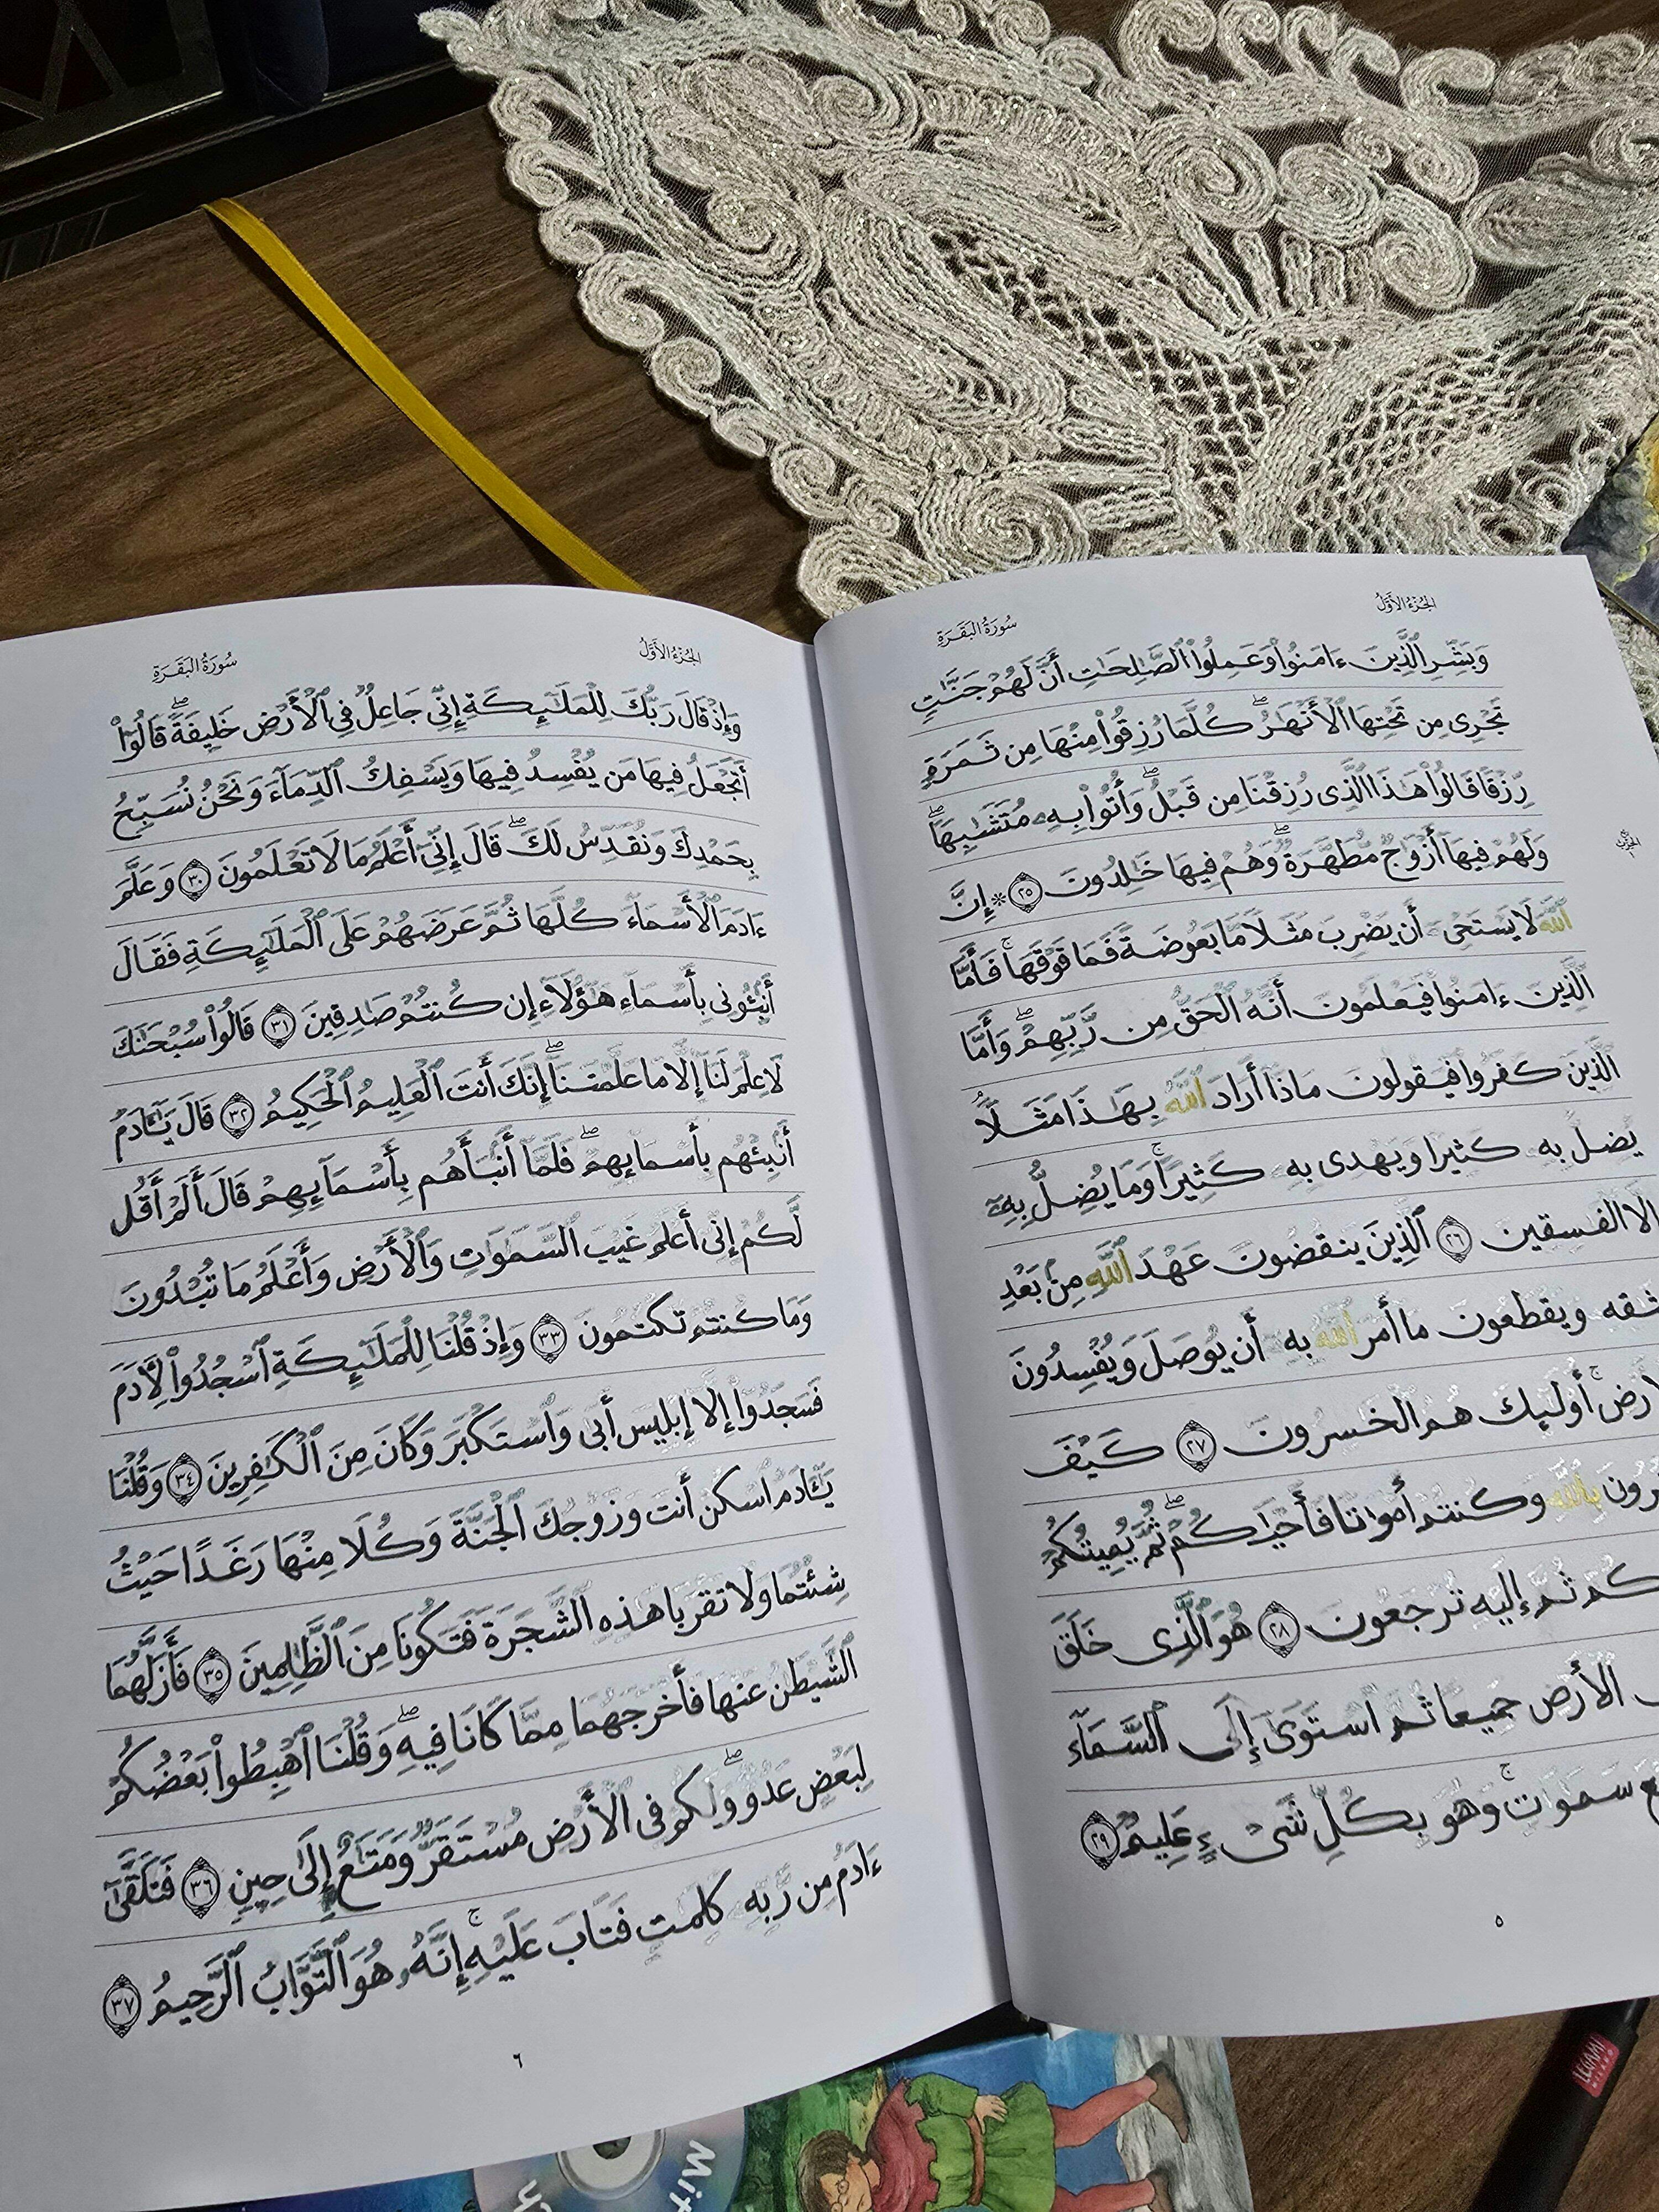 الجُزْءُ الأَوَّلُ
سُورَةُ البَقَرَةِ
وَبَشِّرِ ٱلَّذِينَ ءَامَنُوا۟ وَعَمِلُوا۟ ٱلصَّـٰلِحَـٰتِ أَنَّ لَهُمْ جَنَّـٰتٍ
تَجْرِى مِن تَحْتِهَا ٱلْأَنْهَـٰرُ ۖ كُلَّمَا رُزِقُوا۟ مِنْهَا مِن ثَمَرَةٍ
رِّزْقًا قَالُوا۟ هَـٰذَا ٱلَّذِى رُزِقْنَا مِن قَبْلُ ۖ وَأُتُوا۟ بِهِۦ مُتَشَـٰبِهًا ۖ
وَلَهُمْ فِيهَا أَزْوَٰجٌ مُّطَهَّرَةٌ ۖ وَهُمْ فِيهَا خَـٰلِدُونَ ٢٥ * إِنَّ
ٱللَّهَ لَا يستحى أن يضرب مثلا ما بعوضة فَمَا فَوْقَهَا ۚ فَأَمَّا
ٱلَّذِين ءامنوا فيعلمون أنه الْحَقُّ مِن رَّبِّهِمْ ۖ وَأَمَّا
الَّذين كفروا فيقولون ماذا أراد ٱللَّه بِهَـٰذَا مَثَلًا
يضل به كثيرا ويهدى به كَثِيرًا ۚ وَمَا يُضِلُّ بِهِۦٓ
الا الفسقين ٢٦ ٱلَّذِينَ ينقضون عَهْدَ ٱللَّهِ مِنۢ بَعْدِ
ويقطعون ما أمر ٱلله به أن يُوصَلَ وَيُفْسِدُونَ
أولئك هم الخسرون ٢٧ كَيْفَ
بالله وكنتم أموتا فأحيكم ۖ ثُمَّ يُمِيتُكُمْ
ثم إليه ترجعون ٢٨ هُوَ ٱلَّذِى خَلَقَ
الأرض جميعا ثم استوى إِلَى ٱلسَّمَآءِ
سموت ۚ وهو بكل شىء عَلِيمٌ ٢٩
٥
الجُزْءُ الأَوَّلُ
سُورَةُ البَقَرَةِ
وَإِذْ قَالَ رَبُّكَ لِلْمَلَـٰٓئِكَةِ إِنِّى جَاعِلٌ فِى ٱلْأَرْضِ خَلِيفَةً ۖ قَالُوٓا۟
أَتَجْعَلُ فِيهَا مَن يُفْسِدُ فِيهَا وَيَسْفِكُ ٱلدِّمَآءَ وَنَحْنُ نُسَبِّحُ
بِحَمْدِكَ وَنُقَدِّسُ لَكَ ۖ قَالَ إِنِّىٓ أَعْلَمُ مَا لَا تَعْلَمُونَ ٣٠ وَعَلَّمَ
ءَادَمَ ٱلْأَسْمَآءَ كُلَّهَا ثُمَّ عَرَضَهُمْ عَلَى ٱلْمَلَـٰٓئِكَةِ فَقَالَ
أَنۢبِـُٔونِى بِأَسْمَآءِ هَـٰٓؤُلَآءِ إِن كُنتُمْ صَـٰدِقِينَ ٣١ قَالُوا۟ سُبْحَـٰنَكَ
لَا عِلْمَ لَنَآ إِلَّا مَا عَلَّمْتَنَآ ۖ إِنَّكَ أَنتَ ٱلْعَلِيمُ ٱلْحَكِيمُ ٣٢ قَالَ يَـٰٓـَٔادَمُ
أَنۢبِئْهُم بِأَسْمَآئِهِمْ ۖ فَلَمَّآ أَنۢبَأَهُم بِأَسْمَآئِهِمْ قَالَ أَلَمْ أَقُل
لَّكُمْ إِنِّى أَعْلَمُ غَيْبَ ٱلسَّمَـٰوَٰتِ وَٱلْأَرْضِ وَأَعْلَمُ مَا تُبْدُونَ
وَمَا كنتم تكتمون ٣٣ وَإِذْ قُلْنَا لِلْمَلَـٰٓئِكَةِ ٱسْجُدُوا۟ لِـَٔادَمَ
فَسَجَدُوٓا۟ إلا إبليس أبى وَٱسْتَكْبَرَ وَكَانَ مِنَ ٱلْكَـٰفِرِينَ ٣٤ وَقُلْنَا
يَـٰٓـَٔادم اسكن أنت وزوجك ٱلْجَنَّةَ وَكُلَا مِنْهَا رَغَدًا حَيْثُ
شِئْتُمَا ولا تقربا هذه ٱلشَّجَرَةَ فَتَكُونَا مِنَ ٱلظَّـٰلِمِينَ ٣٥ فَأَزَلَّهُمَا
ٱلشَّيْطن عنها فأخرجهما مِمَّا كَانَا فِيهِ ۖ وَقُلْنَا ٱهْبِطُوا۟ بَعْضُكُمْ
لِبَعْضٍ عدو ۖ ولكم فى الأرض مُسْتَقَرٌّ وَمَتَـٰعٌ إِلَىٰ حِينٍ ٣٦ فَتَلَقَّىٰٓ
ءَادَمُ مِن رَّبِّه كلمت فَتَابَ عَلَيْهِ ۚ إِنَّهُۥ هُوَ ٱلتَّوَّابُ ٱلرَّحِيمُ ٣٧
٦
LEGAMI
MILANO
Mit